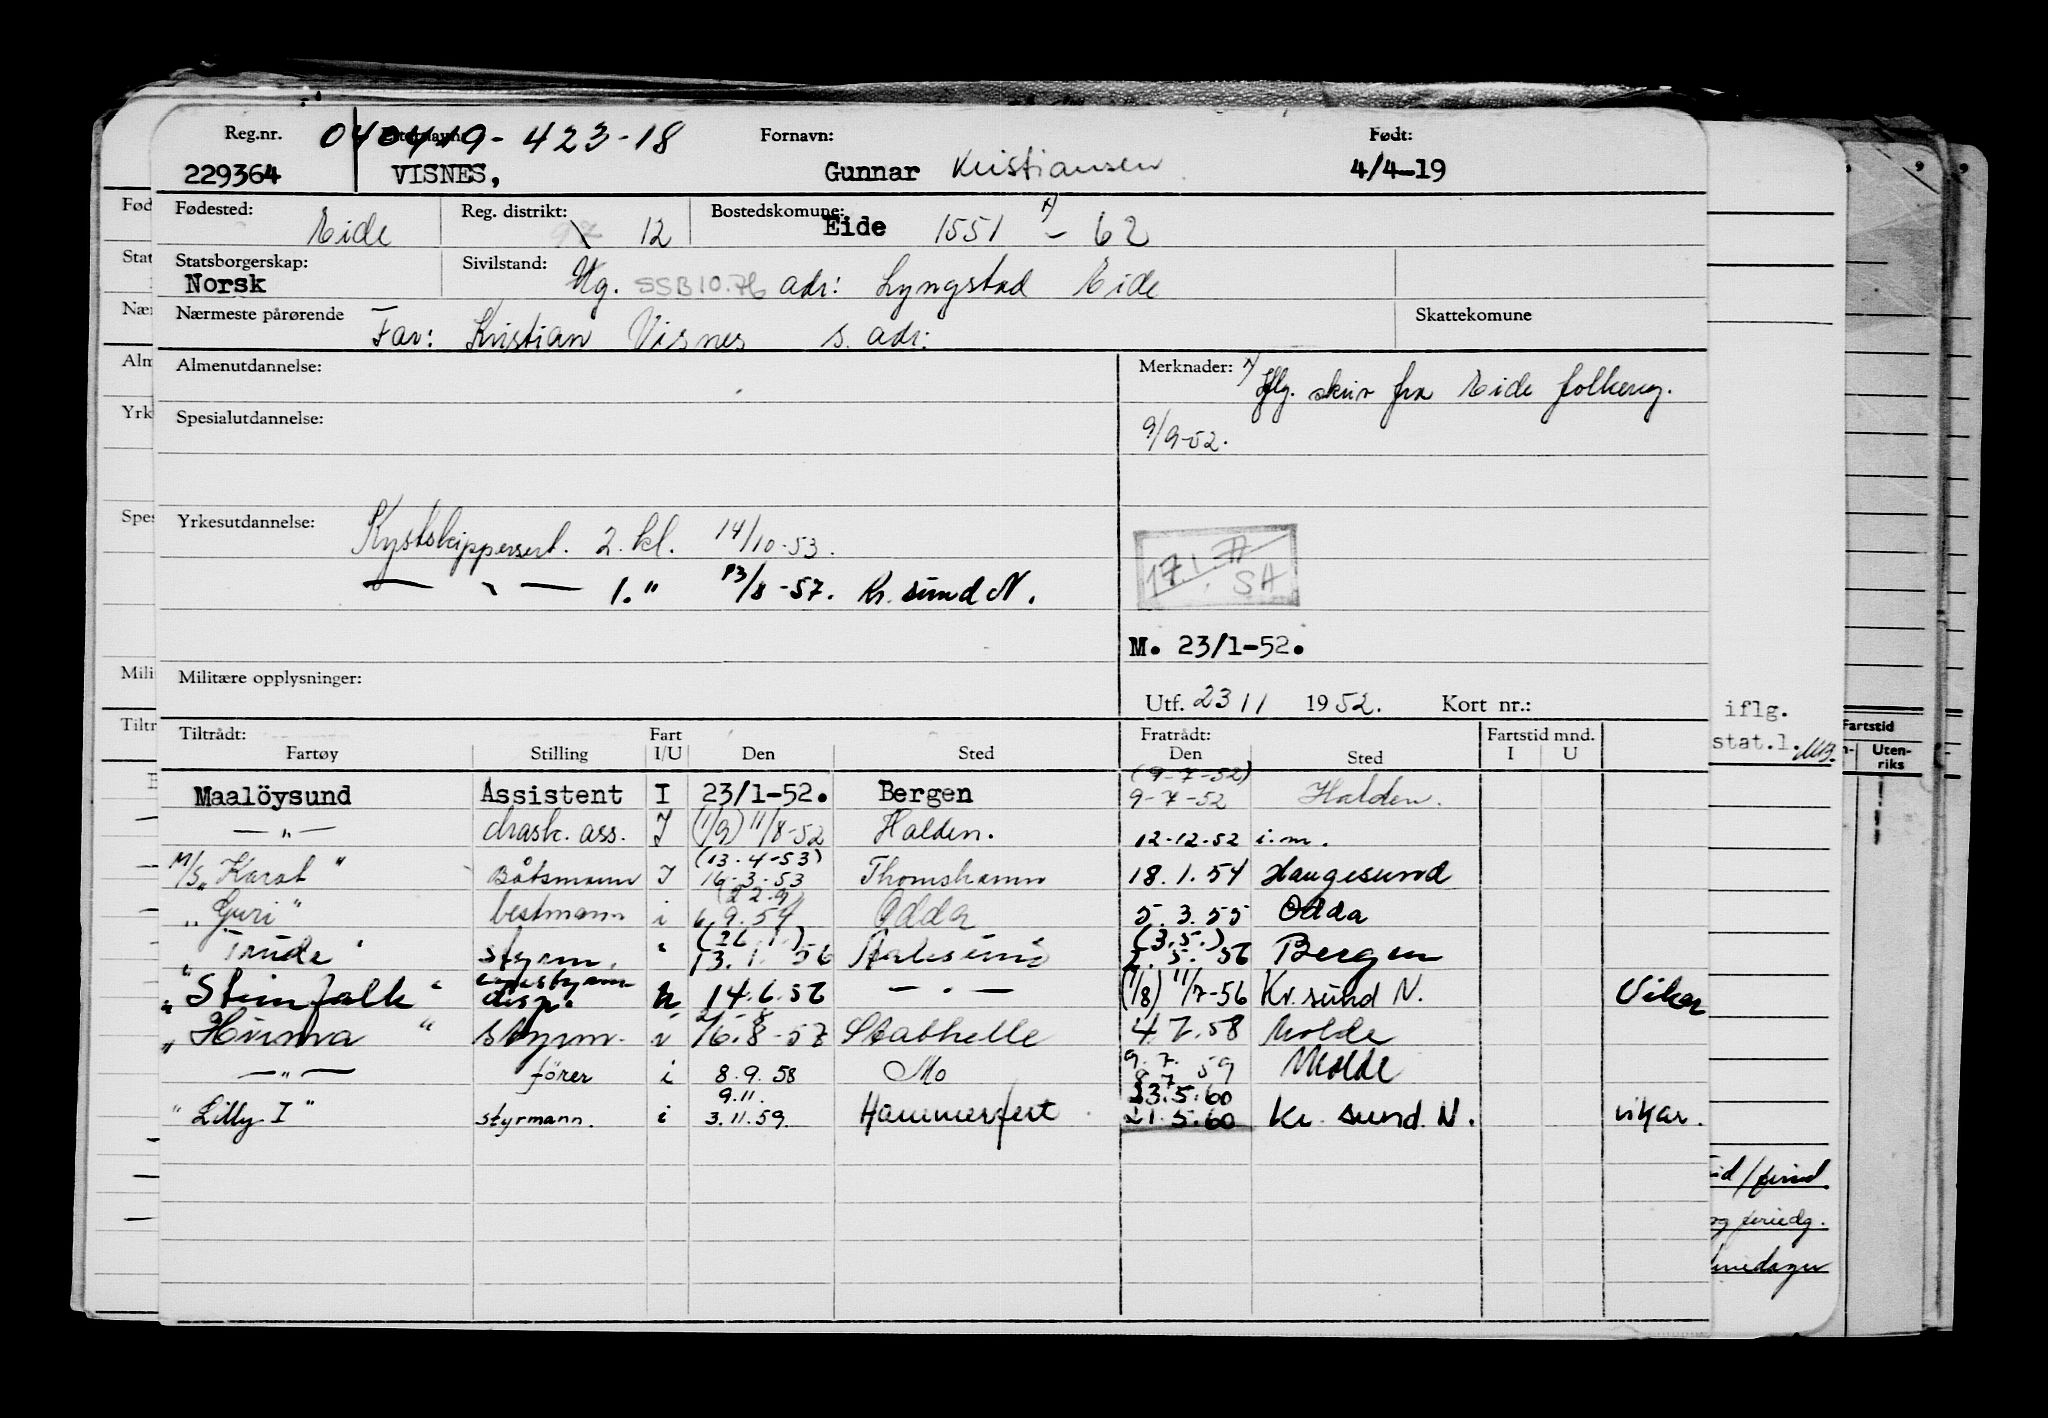 Reg.nr. 040419-423-18 Fornavn: Født:
229364 VISNES, Gunnar Kristiansen 4/4-19
Fødested: Eide Reg. distrikt: 12 Bostedskomune: Eide 1551 - 62
Statsborgerskap: Norsk Sivilstand: Ug. SSB10.76 adr: Lyngstad Eide
Nærmeste pårørende Far: Kristian Visnes s. adr: Skattekomune
Almenutdannelse: Merknader: Iflg. skriv fra Eide folkereg.
9/9-52.
Spesialutdannelse:
Yrkesutdannelse: Kystskippersert. 2. kl. 14/10-53.
— " — 1. " 13/8-57. Kr. sund N.
17.1.77 SH
M. 23/1-52.
Militære opplysninger:
Utf. 23/1 1952. Kort nr.:
Tiltrådt: Fart Fratrådt: Fartstid mnd.
Fartøy Stilling I/U Den Sted Den Sted I U
(9-7-52)
Maalöysund Assistent I 23/1-52. Bergen 9-7-52 Halden.
—"— mask. ass. I (1/9) 11/8-52 Halden. 12-12-52 i.m.
(13-4-53)
M/S "Karat" Båtsmann I 16-3-53 Thomshamn 18.1.54 Haugesund
(22.9)
"Guri" bestmann i 6.9.54 Odda 5.3.55 Odda
(26.1.) (3.5.)
"Trude" styrm. i 13.1.56 Aalesund 2.5.56 Bergen
"Steinfalk" disp. 14.6.56 — " — (1/8) 11/7-56 Kr. sund N. Vikar
"Hunva" styrm. i 16.8-57 Stathelle 4.7.58 Molde
—"— förer i 8.9.58 Mo 9.7.59 Molde
9.11. 23.5.60
"Lilly I" styrmann. i 3.11.59. Hammerfest 21.5.60 Kr. sund. N. vikar.
Fød
Stat
Nær
Alm
Yrk
Spes
Mili
Tiltr
iflg.
stat.l. MB.
Fartstid
Uten-
riks
og feriedg.